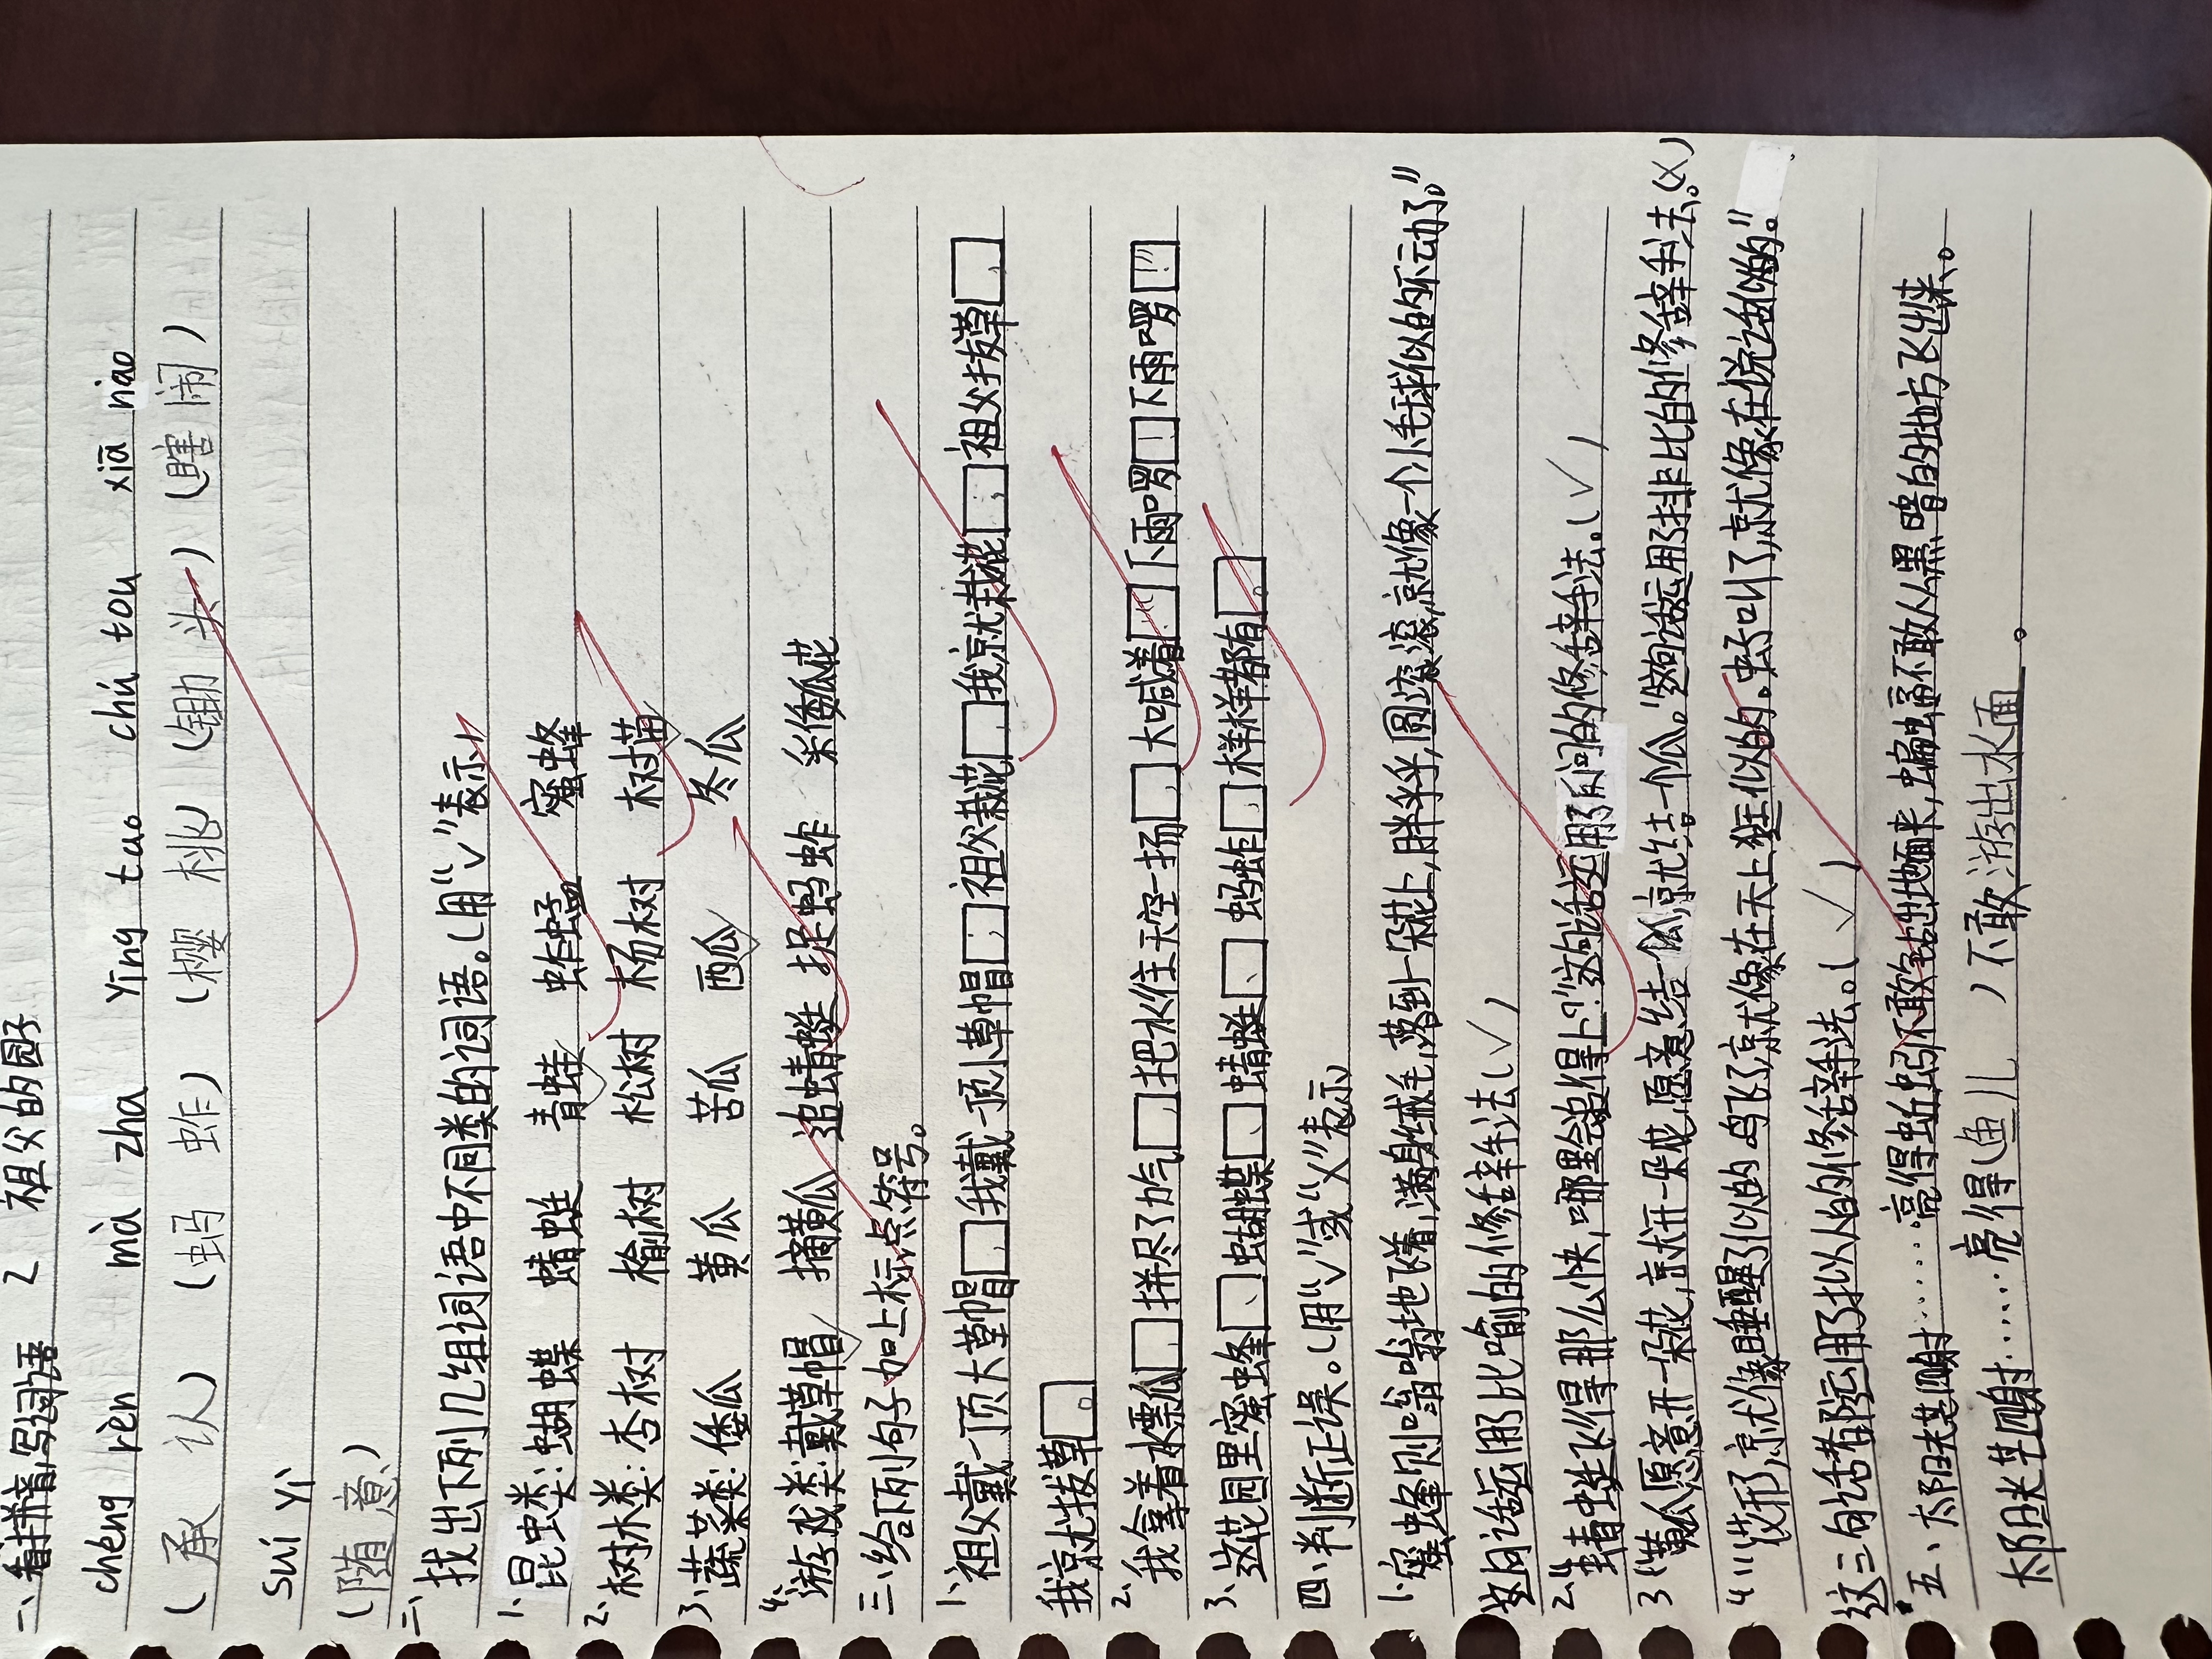 2 祖父的园子
一、看拼音,写词语
chéng rèn mà zha yīng tao chú tou xiā nào
(承认) (蚂蚱) (樱桃) (锄头) (瞎闹)
suí yì
(随意)
二、找出下列几组词语中不同类的词语。(用“√”表示)
1、昆虫类:蝴蝶 蜻蜓 青蛙√ 蚱蜢 蜜蜂
2、树木类:杏树 榆树 松树 杨树 树苗√
3、蔬菜类:倭瓜 黄瓜 苦瓜 西瓜√ 冬瓜
4、游戏类:戴草帽√ 摘黄瓜 追蜻蜓 捉蚂蚱 采倭瓜花
三、给下列句子加上标点符号。
1、祖父戴一顶大草帽,我戴一顶小草帽;祖父栽花,我就栽花;祖父拔草,
我就拔草。
2、我拿着水瓢,拼尽了力气,把水往天空一扬,大喊着:“下雨啰!下雨啰!”
3、这花园里蜜蜂、蝴蝶、蜻蜓、蚂蚱,样样都有。
四、判断正误。(用“√”或“×”表示)
1、蜜蜂则嗡嗡地飞着,满身绒毛,落到一朵花上,胖乎乎,圆滚滚,就像一个小毛球似的不动了。”
这句话运用比喻的修辞手法(√)
2、“蜻蜓飞得那么快,哪里会追得上?”这句话运用了反问的修辞手法。(√)
3“黄瓜愿意开一朵花,就开一朵花,愿意结一个瓜,就结一个瓜。”这句话运用了排比的修辞手法。(×)
4“花开了,就像睡醒了似的。鸟飞了,就像在天上逛似的。虫子叫了,就像在说话似的。”
这三句话都运用了拟人的修辞手法。(√)
五、太阳光芒四射……亮得蚯蚓不敢钻出地面来,蝙蝠不敢从黑暗的地方飞出来。
太阳光芒四射……亮得(鱼儿)不敢游出水面。